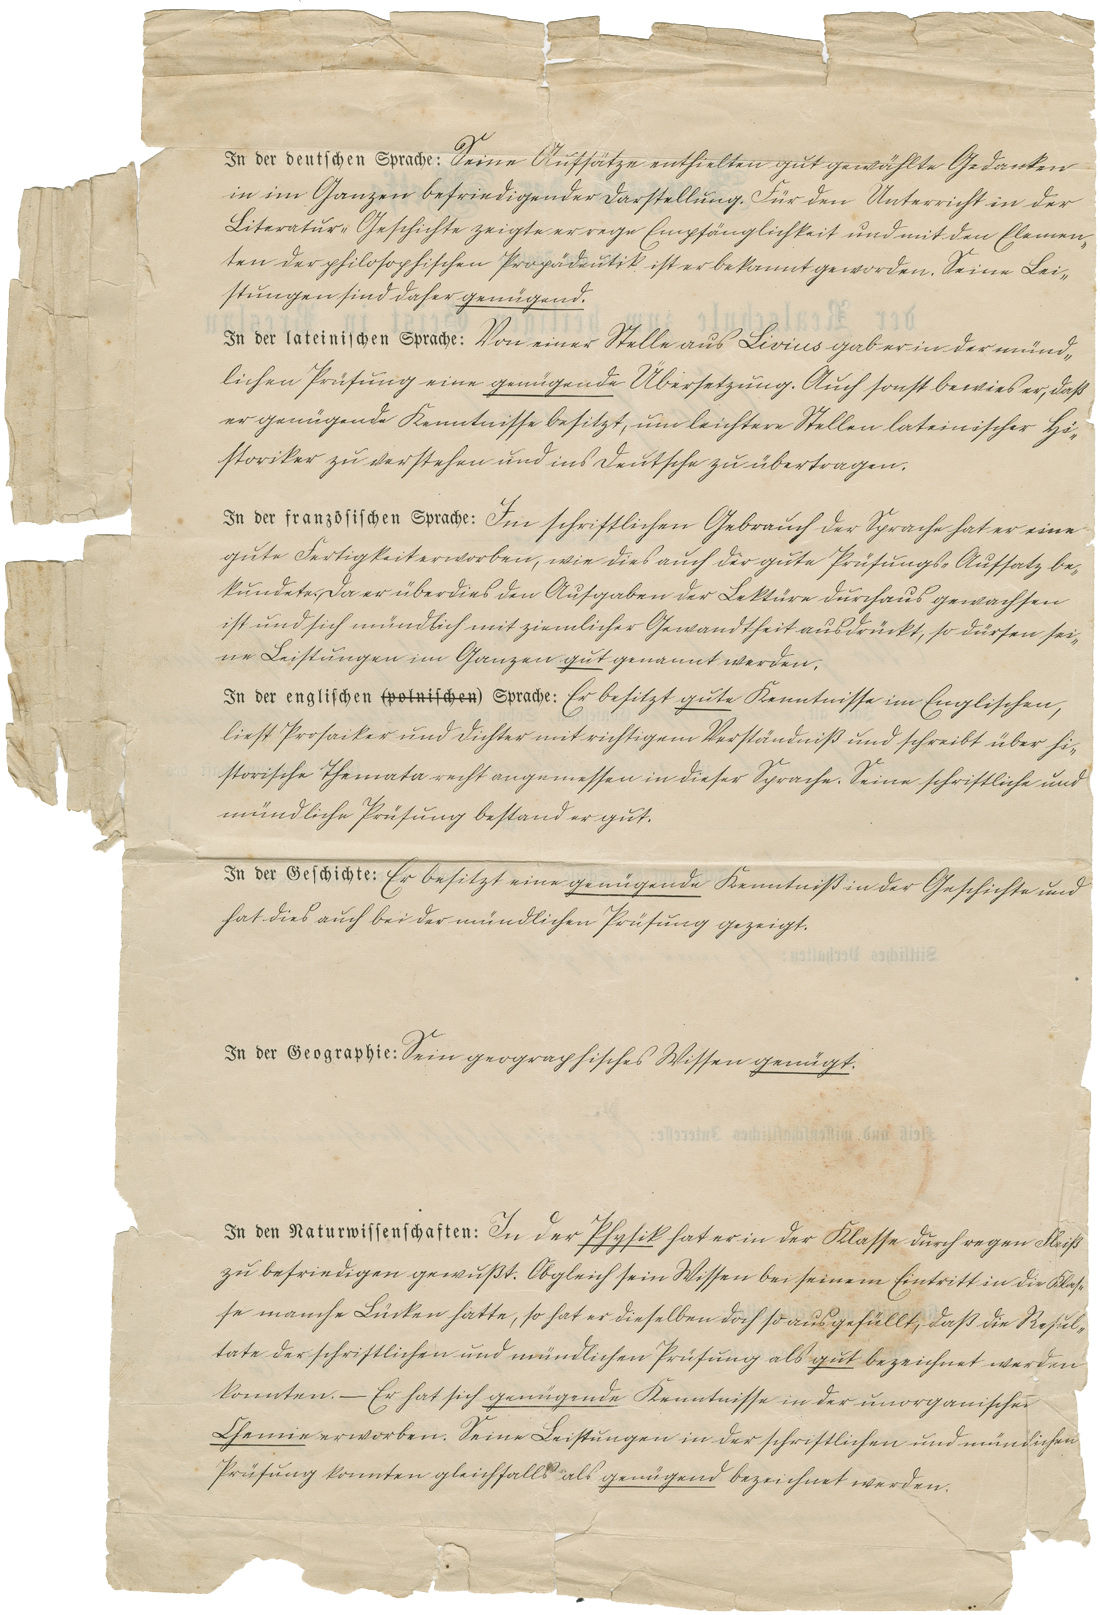 In der deutschen Sprache: Seine Aufsätze enthielten gut gewählte Gedanken
in im Ganzen befriedigender Darstellung. Für den Unterricht in der
Literatur-Geschichte zeigte er rege Empfänglichkeit und mit den Elemen-
ten der philosophischen Propädeutik ist er bekannt geworden. Seine Lei-
stungen sind daher genügend.
In der lateinischen Sprache: Von einer Stelle aus Livius gab er in der münd-
lichen Prüfung eine genügende Übersetzung. Auch sonst bewies er, daß
er genügende Kenntnisse besitzt, um leichtere Stellen lateinischer Hi-
storiker zu verstehen und ins Deutsche zu übertragen.
In der französischen Sprache: Im schriftlichen Gebrauch der Sprache hat er eine
gute Fertigkeit erworben, wie dies auch der gute Prüfungs-Aufsatz be-
kundete. Da er überdies den Aufgaben der Lektüre durchaus gewachsen
ist und sich mündlich mit ziemlicher Gewandtheit ausdrückt, so dürfen sei-
ne Leistungen im Ganzen gut genannt werden.
In der englischen (polnischen) Sprache: Er besitzt gute Kenntnisse im Englischen,
liest Prosaiker und Dichter mit richtigem Verständniß und schreibt über hi-
storische Themata recht angemessen in dieser Sprache. Seine schriftliche und
mündliche Prüfung bestand er gut.
In der Geschichte: Er besitzt eine genügende Kenntniß in der Geschichte und
hat dies auch bei der mündlichen Prüfung gezeigt.
In der Geographie: Sein geographisches Wissen genügt.
In den Naturwissenschaften: In der Physik hat er in der Klasse durch regen Fleiß
zu befriedigen gewußt. Obgleich sein Wissen bei seinem Eintritt in die Klas-
se manche Lücken hatte, so hat er dieselben doch so ausgefüllt, daß die Resul-
tate der schriftlichen und mündlichen Prüfung als gut bezeichnet werden
konnten. — Er hat sich genügende Kenntnisse in der unorganischen
Chemie erworben. Seine Leistungen in der schriftlichen und mündlichen
Prüfung konnten gleichfalls als genügend bezeichnet werden.